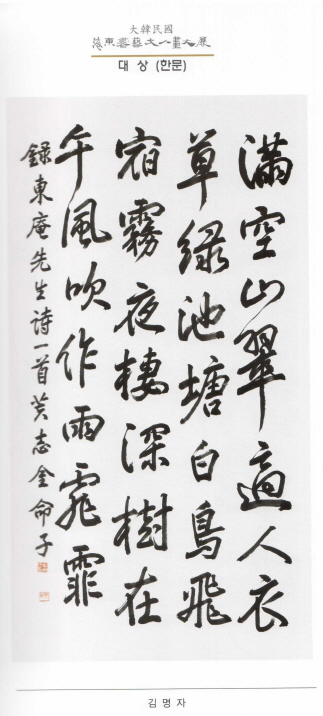 大韓民國
海東書藝文人畫大展
대 상 (한문)
滿空山翠適人衣
草綠池塘白鳥飛
宿霧夜棲深樹在
午風吹作雨霏霏
錄東庵先生诗一首芙志金命子
김 명 자